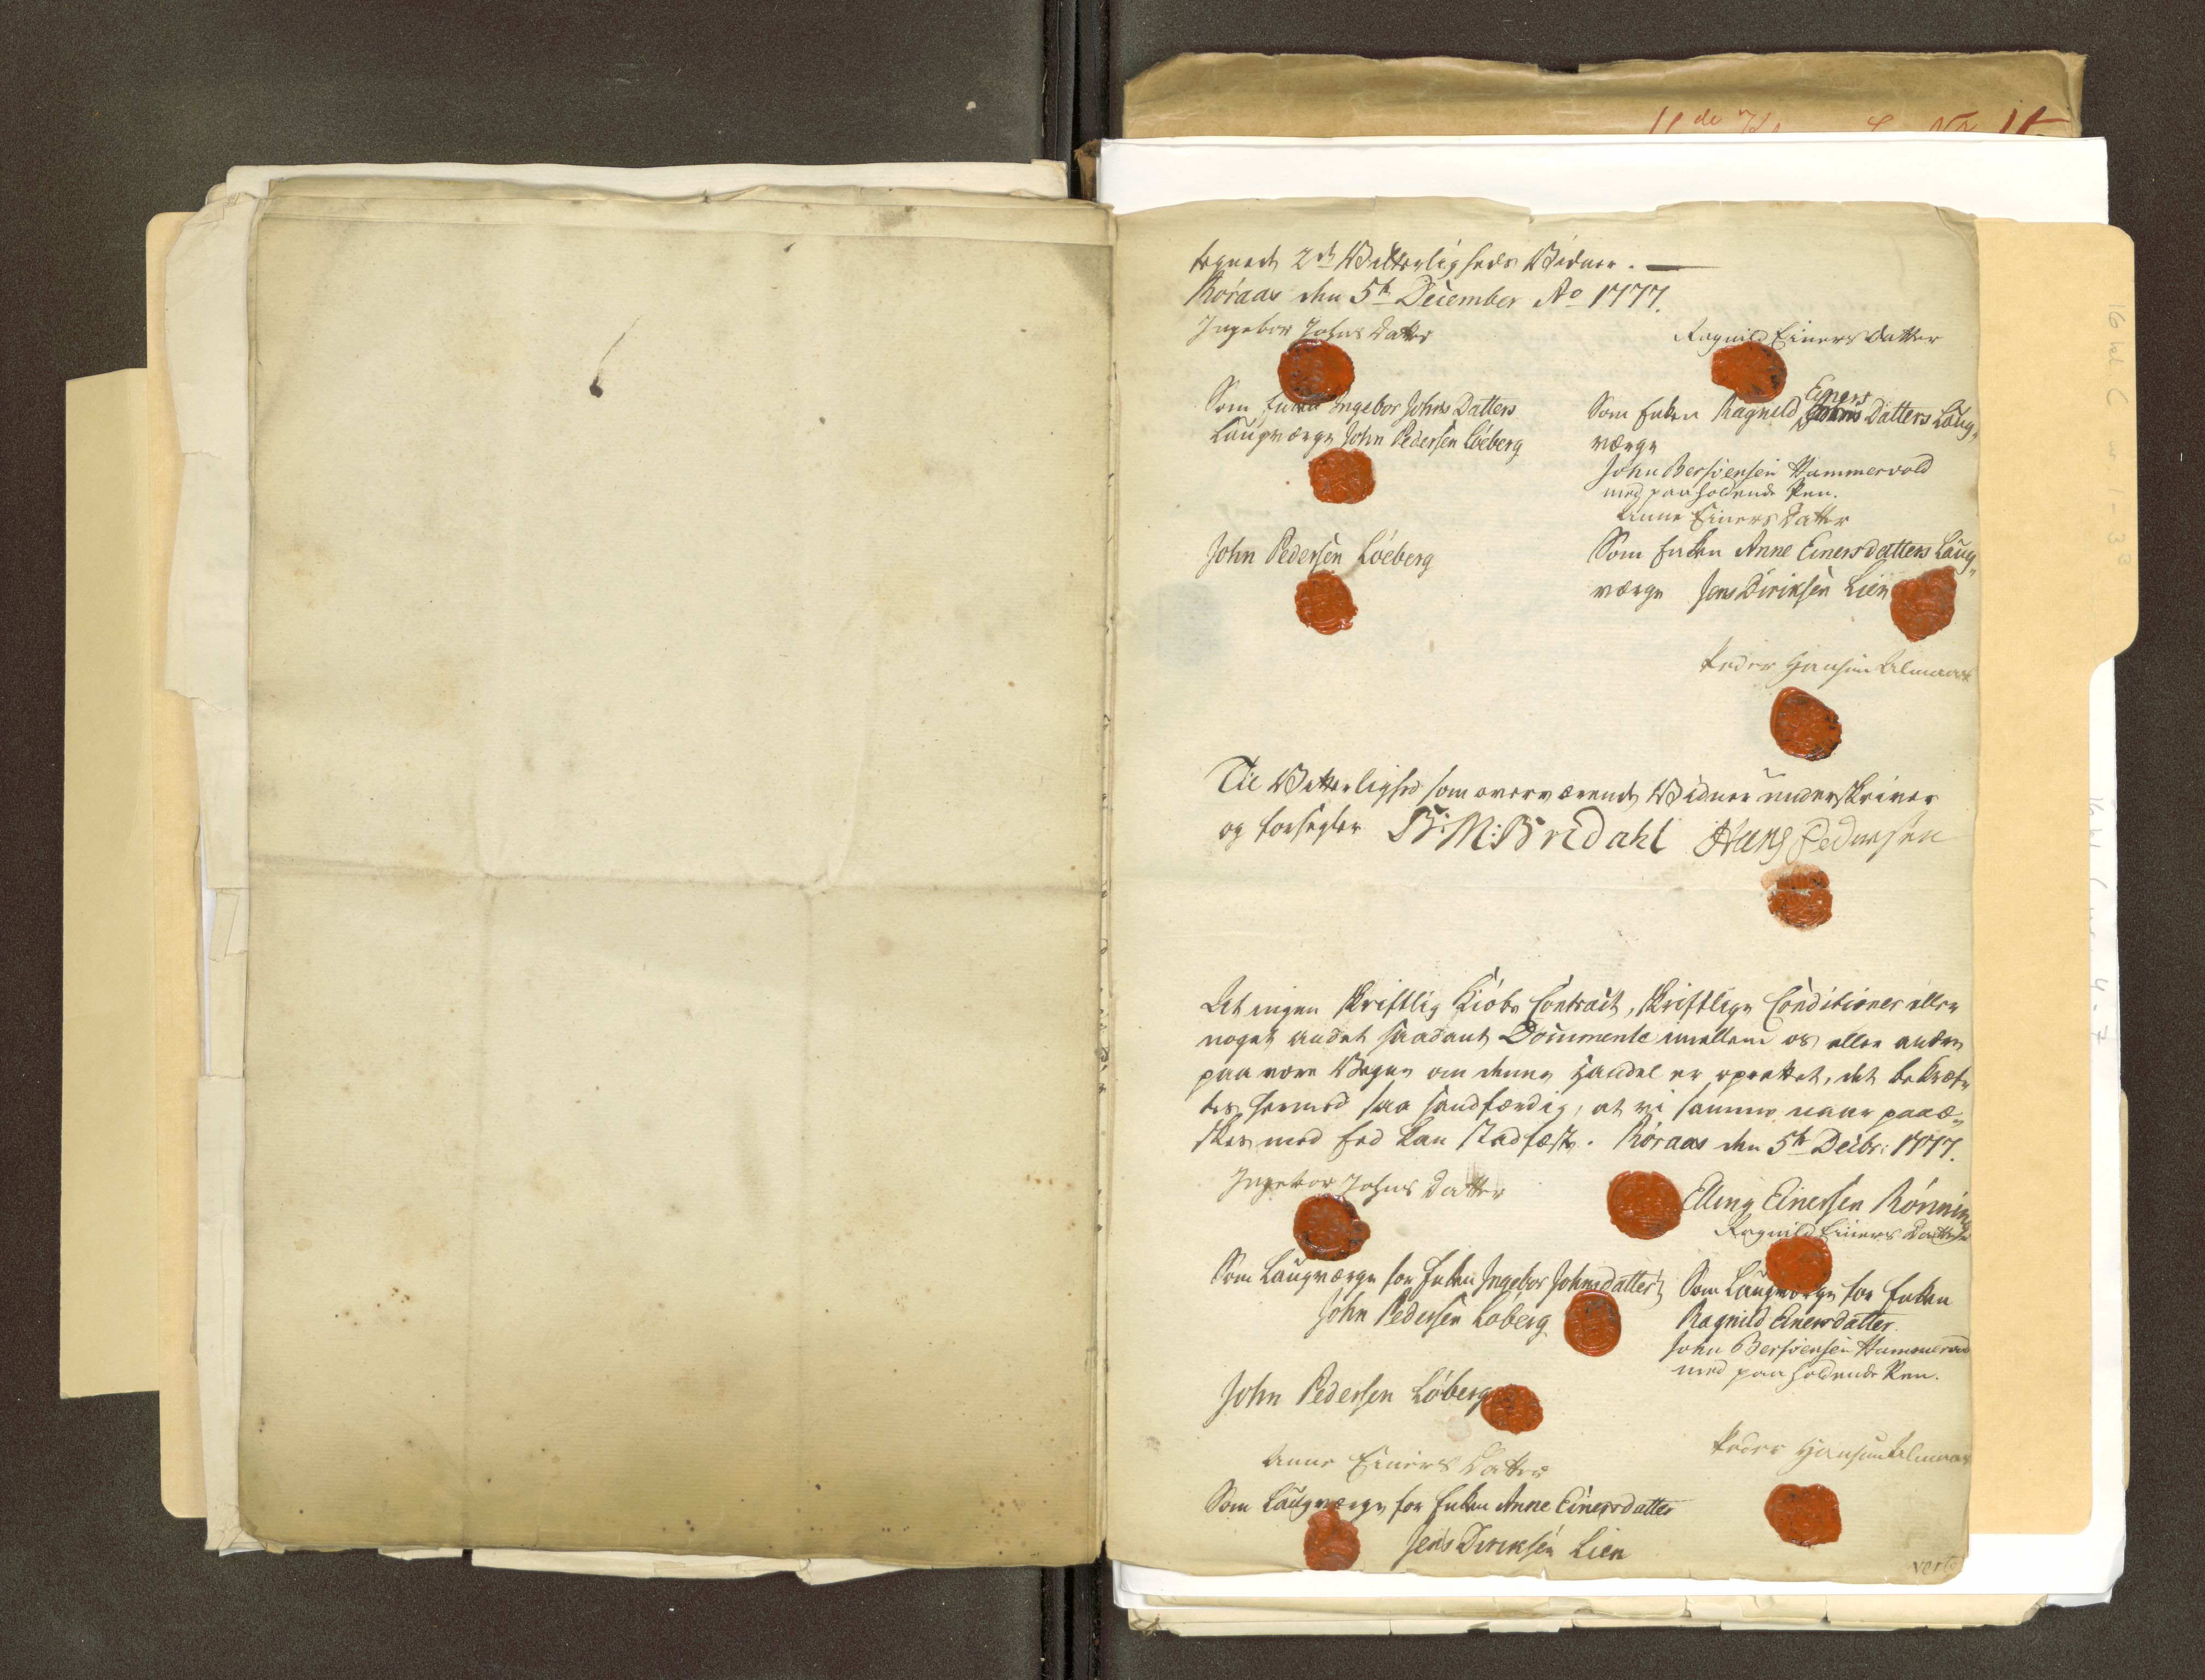 tegnede 2de Witterligheds Widner. —
Röraas den 5te December Ao 1777.
Ingebor Johns Datter
Ragnild Einers Datter
Som Enken Ingebor Johns Datters
Laugværge John Pedersen Löeberg
Som Enken Ragnild Einers Datters Laug„
værge
John Bersvensen Hammervold
med paaholdende Pen.
Anne Einers Datter
John Pedersen Löeberg
Som Enken Anne Einersdatters Laug„
værge Jens Diriksen Lien
Peder Hansen Almaas
Til Witterlighed som overværende Widner underskriver
og forsegler B: M: Bredahl Hans Pedersen
At ingen skriftlig Kiöbe Contract, skriftlige Conditioner eller
noget andet saadant Documente imellem os eller andre
paa vore Wegne om denne Handel er oprettet, det bekræf„
tes hermed saa sandfærdig, at vi samme naar paaæ„
skes med Eed kan stadfæste. Röraas den 5te Decbr: 1777.
Ingebor Johns Datter
Elling Einersen Rönning
Ragnild Einers Datter
Som Laugværge for Enken Ingebor Johnsdatter
John Pedersen Löberg
Som Laugværge for Enken
Ragnild Einersdatter.
John Bersvensen Hammervold
med paaholdende Pen.
John Pedersen Löberg
Peder Hansen Almaas
Anne Einers Datter
Som Laugværge for Enken Anne Einersdatter
Jens Diriksen Lien
verte